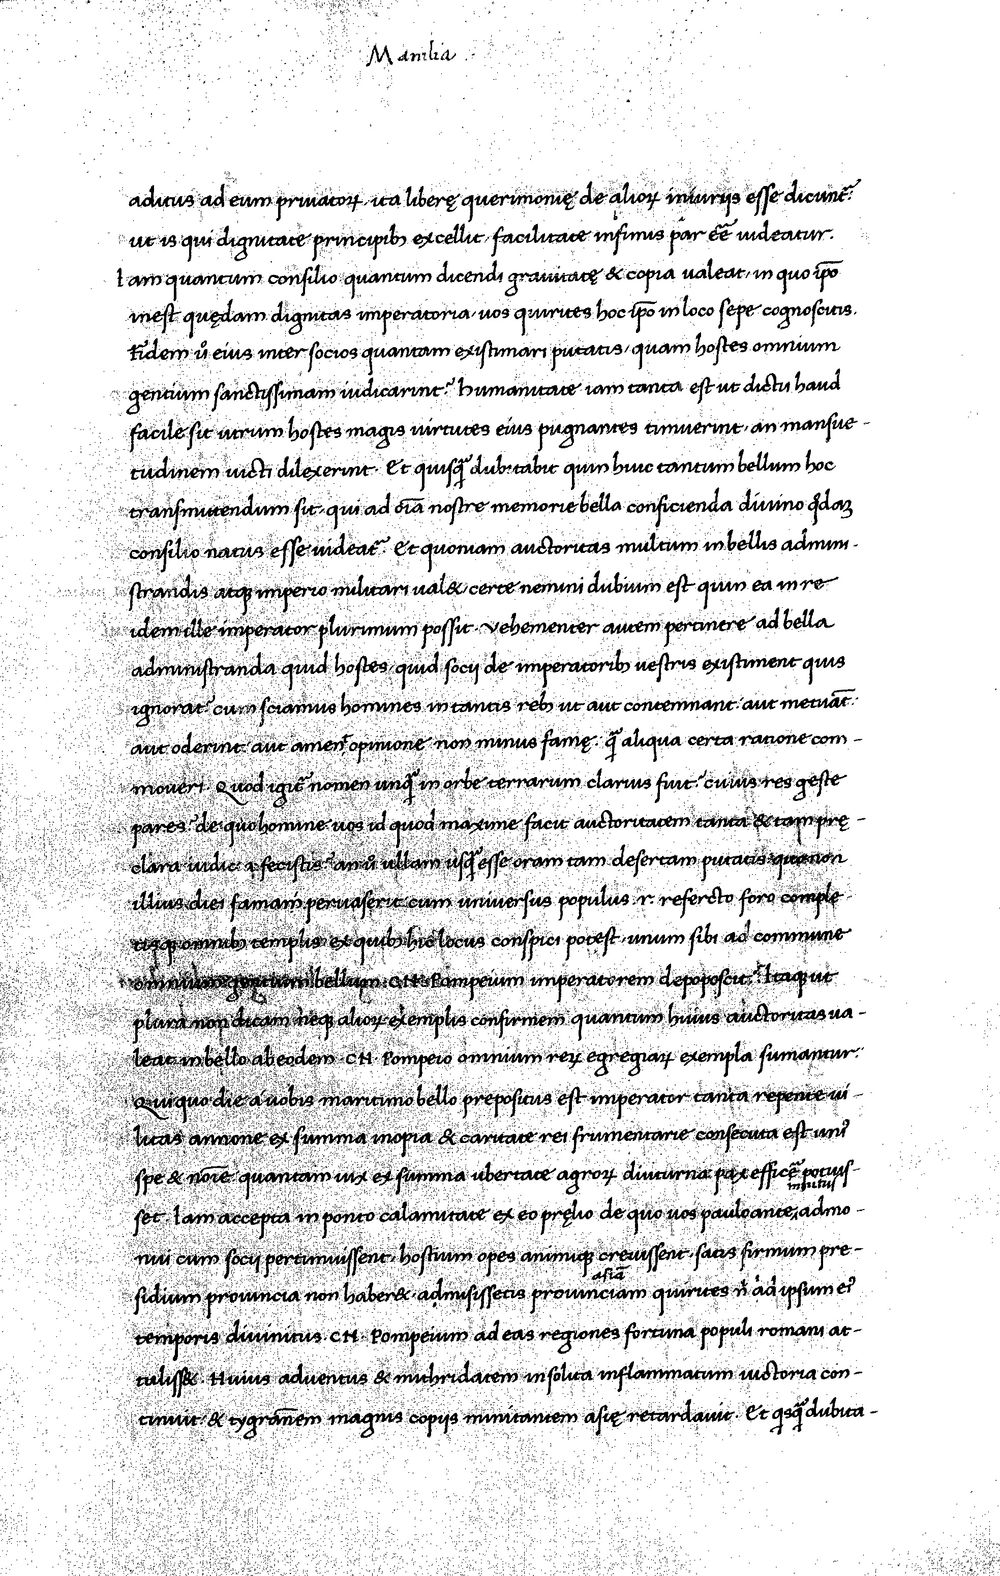 Manilia
aditus ad eum priuatoꝝ. ita liberę querimonię de alioꝝ iniurijs esse dicunt᷑?
ut is qui dignitate principibꝫ excellit, facilitate infimis par ēē uideatur.
Iam quantum consilio quantum dicendi grauitatę & copia ualeat, in quo ip̄o
inest quędam dignitas imperatoria, uos quirites hoc ip̄o in loco sepe cognoscitis.
fidem u̇̊ eius inter socios quantam existimari putatis, quam hostes omnium
gentium sanctissimam iudicarint? humanitate iam tanta est ut dictu haud
facile sit utrum hostes magis uirtutes eius pugnantes timuerint, an mansue-
tudinem uicti dilexerint. Et quisq̄ dubitabit quin huic tantum bellum hoc
transmittendum sit, qui ad oı̄a nostre memorie bella conficienda diuino q̊daꝫ
consilio natus esse uideat᷑? Et quoniam auctoritas multum in bellis admini-
strandis atqꝫ imperio militari ual& certe nemini dubium est quin ea in re
idem ille imperator plurimum possit. Vehementer autem pertinere ad bella
administranda quid hostes, quid socij de imperatoribꝫ uestris existiment quis
ignorat? cum sciamus homines in tantis rebꝫ ut aut contemnant. aut metuāt.
aut oderint. aut ament opinione non minus famę. q̄ aliqua certa ratione com-
moueri. Quod igit᷑ nomen unq̄ in orbe terrarum clarius fuit? cuius res geste
pares? de quo homine uos id quod maxime facit auctoritatem tanta & tam prę-
clara iudicia fecistis? an u̇̊ ullam usq̄ esse oram tam desertam putatis quo non
illius diei famam peruaserit cum uniuersus populus .r. referto foro comple-
tisqꝫ omnibꝫ templis ex quibꝫ hic locus conspici potest, unum sibi ad commune
omnium gentium bellum. CN. Pompeium imperatorem depoposcit? Itaqꝫ ut
plura non dicam neqꝫ alioꝝ exemplis confirmem quantum huius auctoritas ua-
leat in bello ab eodem .CN. Pompeio omnium reꝝ egregiaꝝ exempla sumantur.
Qui quo die a uobis maritimo bello prepositus est imperator tanta repente ui-
litas annone ex summa inopia & caritate rei frumentarie consecuta est uni᷒
spe & noīe quantam uix ex summa ubertate agroꝝ diuturna pax efficē potuis-
set. Iam accepta in ponto calamitate ex eo pręlio de quo uos pauloante inuitus admo-
nui cum socij pertimuissent, hostium opes animiqꝫ creuissent, satis firmum pre-
sidium prouincia non haber&. admisissetis asiā prouinciam quirites n̊ ad ipsum ei᷒
temporis diuinitus .CN. Pompeium ad eas regiones fortuna populi romani at-
tuliss&. Huius aduentus & mithridatem insolita inflammatum uictoria con-
tinuit & tygranem magnis copijs minitantem asię retardauit. Et q̇sq̄ dubita-